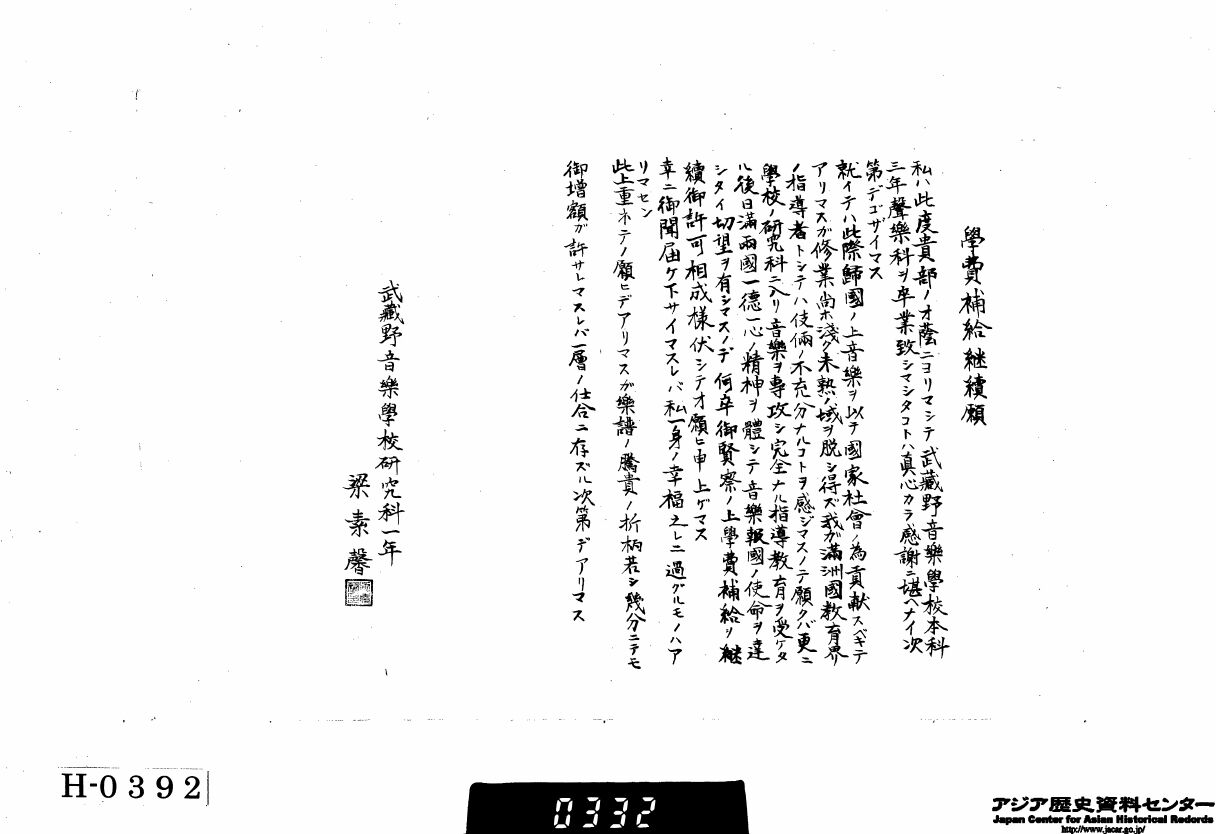 學費補給継續願
私ハ此度貴部ノオ蔭ニヨリマシテ武藏野音樂學校本科
三年聲樂科ヲ卒業致シマシタコトハ真心カラ感謝ニ堪ヘナイ次
第デゴザイマス
就イテハ此際歸國ノ上音樂ヲ以テ國家社會ノ為貢献スベキデ
アリマスガ修業尚ホ淺ク未熟ノ域ヲ脱シ得ズ我ガ滿洲國教育界
ノ指導者トシテハ伎倆ノ不充分ナルコトヲ感ジマスノデ願クバ更ニ
學校ノ研究科ニ入リ音樂ヲ專攻シ完全ナル指導教育ヲ受ケタ
ル後日滿兩國一德一心ノ精神ヲ體シテ音樂報國ノ使命ヲ達
シタイ切望ヲ有シマスノデ何卒御賢察ノ上學費補給ヲ継
續御許可相成様伏シテオ願ヒ申上ゲマス
幸ニ御聞届ケ下サイマスレバ私一身ノ幸福之レニ過グルモノハア
リマセン
此上重ネテノ願ヒデアリマスガ樂譜ノ騰貴ノ折柄若シ幾分ニテモ
御増額ガ許サレマスレバ一層ノ仕合ニ存ズル次第デアリマス
武藏野音樂學校研究科一年
梁泰馨
H-0392
0332
アジア歴史資料センター
Japan Center for Asian Historical Records
http://www.jacar.go.jp/